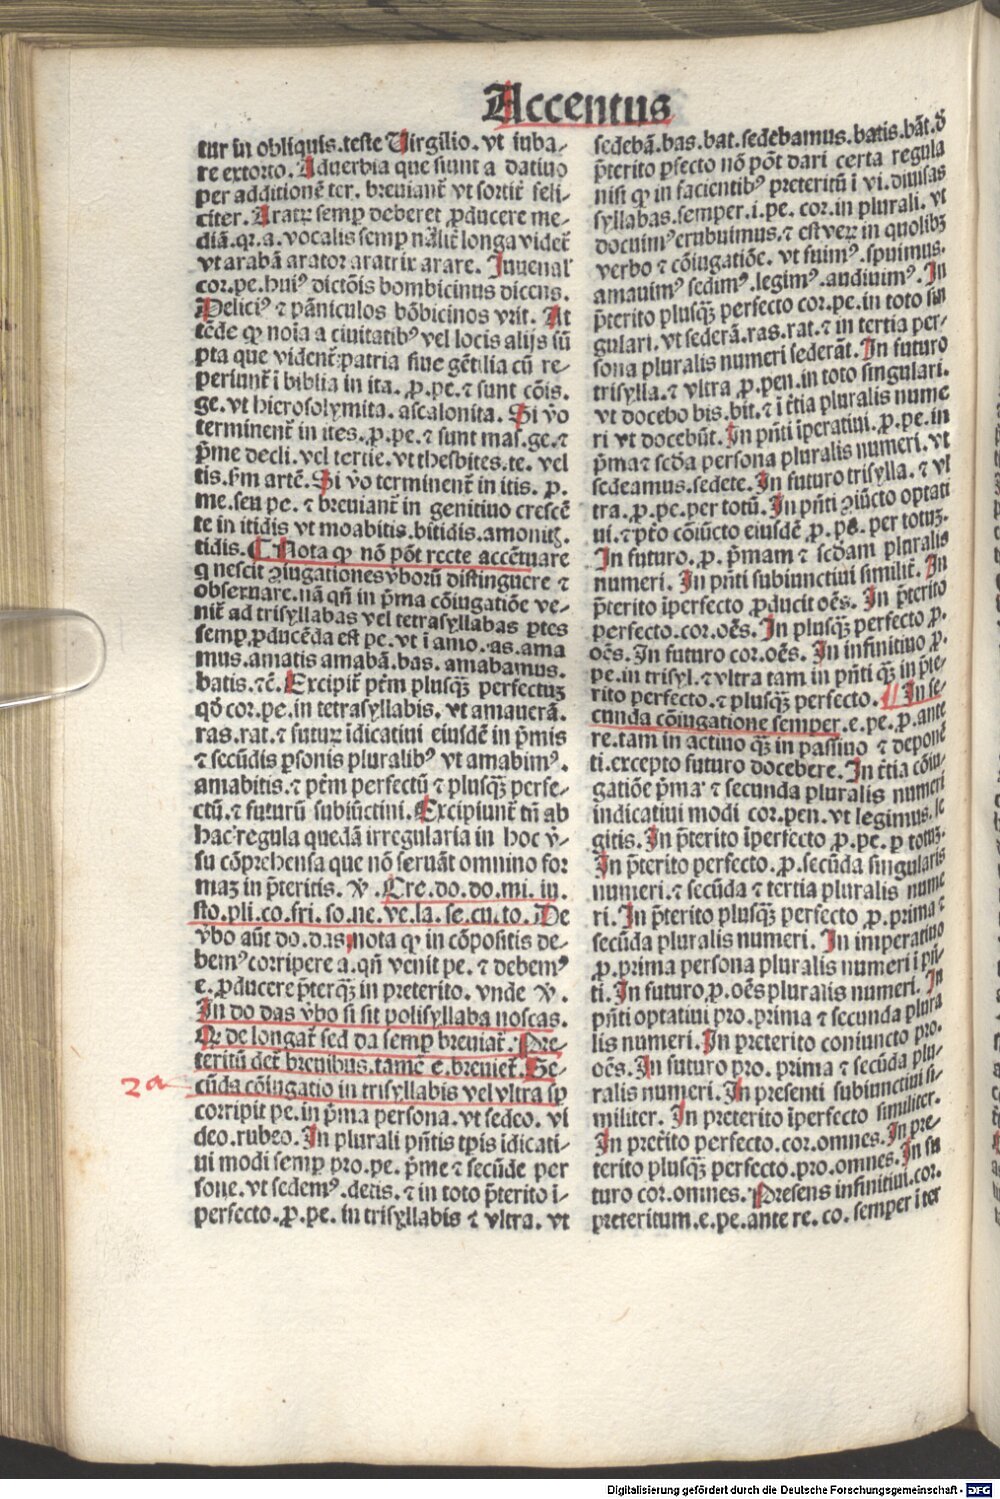 Accentus
tur in obliquis.teste Virgilio.vt iuba⸗
re extorto.Aduerbia que fiunt a datiuo
per additionē ter. breuianť vt sortiť feli⸗
citer.Aratꝝ semꝑ deberet ꝓducere me⸗
diā.qꝛ.a.vocalis semꝑ nāliť longa videť
vt arabā arator aratrix arare. Juuenal'
cor.pe.huiꝰ dictōis bombicinus dicens.
Deliciꝰ ⁊ pāniculos bōbicinos vrit. At
tēde ꝙ noīa a ciuitatibꝰ vel locis alijs sū
pta que videnť patria siue gētilia cū re⸗
periunť ī biblia in ita. ꝓ.pe.⁊ sunt cōis.
ge.vt hierosolymita.ascalonita. Si v̄o
terminenť in ites.ꝓ.pe.⁊ sunt mas.ge.⁊
p̄me decli.vel tertie.vt thesbites.te. vel
tis.fm artē.Si v̄o terminenť in itis. ꝓ.
me.seu pe. ⁊ breuianť in genitiuo crescē
te in itidis vt moabitis.bitidis.amonitꝫ.
tidis. ¶ Nota ꝙ nō pōt recte accētuare
q nescit ꝯiugationes v̄borū distinguere ⁊
obseruare.nā qn̄ in p̄ma cōiugatiōe ve⸗
niť ad trisyllabas vel tetrasyllabas ꝑtes
semꝑ ꝓducēda est pe.vt ī amo.as.ama
mus.amatis amabā.bas.amabamus.
batis.⁊ē.Excipiť p̄tm plusqꝫ perfectuꝫ
qd̄ cor.pe.in tetrasyllabis.vt amauerā.
ras.rat.⁊ futurꝝ īdicatiui eiusdē in p̄mis
⁊ secūdis ꝑsonis pluralibꝰ vt amabimꝰ.
amabitis.⁊ p̄tm perfectū ⁊ plusqꝫ perfe⸗
ctū.⁊ futurū subiūctiui.Excipiunť tn̄ ab
hac regula quedā irregularia in hoc v̄⸗
su cōprehensa que nō seruāt omnino for
maꝫ in p̄teritis. ꝟ .Cre.do.do.mi. iu.
sto.pli.co.fri.so.ne.ve.la.se.cu.to. De
v̄bo aūt do.das nota ꝙ in cōpositis de⸗
bemꝰ corripere a.qn̄ venit pe.⁊ debemꝰ
e.ꝓducere p̄terqꝫ in preterito. vnde ꝟ .
In do das v̄bo si sit polisyllaba noscas.
Qꝛ de longať sed da semꝑ breuiať. Pre⸗
teritū deť breuibus.tamē e.breuieť.Se⸗
cūda cōiugatio in trisyllabis vel vltra sꝑ
2a
corripit pe.in p̄ma persona.vt sedeo. vi
deo.rubeo.In plurali pn̄tis tꝑis īdicati⸗
ui modi semꝑ pro.pe. p̄me ⁊ secūde per
sone.vt sedemꝰ.detis.⁊ in toto p̄terito ī⸗
perfecto.ꝓ.pe. in trisyllabis ⁊ vltra. vt
sedebā.bas.bat.sedebamus.batis.bāt.d̄
p̄terito ꝑfecto nō pōt dari certa regula
nisi ꝙ in facientibꝰ preteritū ī vi.diuisas
syllabas.semper.i.pe. cor.in plurali. vt
docuimꝰ erubuimus.⁊ est verꝝ in quolibꝫ
verbo ⁊ cōiugatiōe. vt fuimꝰ.spuimus.
amauimꝰ sedimꝰ.legimꝰ.audiuimꝰ. In
p̄terito plusqꝫ perfecto cor.pe.in toto sin
gulari.vt sederā.ras.rat.⁊ in tertia per⸗
sona pluralis numeri sederāt.In futuro
trisylla.⁊ vltra ꝓ.pen.in toto singulari.
vt docebo bis.bit.⁊ ī t̄tia pluralis nume
ri vt docebūt.In pn̄ti īperatiui.ꝓ.pe.in
p̄ma ⁊ scd̄a persona pluralis numeri.vt
sedeamus.sedete.In futuro trisylla.⁊ vl
tra.ꝓ.pe.per totū.In pn̄ti ꝯiūcto optati
ui.⁊ p̄to cōiūcto eiusdē ꝓ.pe.per totuꝫ.
In futuro.ꝓ.p̄mam ⁊ scd̄am pluralis
numeri. In pn̄ti subiunctiui similiť.In
p̄terito īperfecto ꝓducit oēs. In p̄terito
perfecto.cor.oēs.In plusqꝫ perfecto ꝓ.
oēs.In futuro cor.oēs. In infinitiuo ꝓ.
pe.in trisyl.⁊ vltra tam in pn̄ti qꝫ in p̄te⸗
rito perfecto.⁊ plusqꝫ perfecto. ¶ In se⸗
cunda cōiugatione semper.e.pe.ꝓ.ante
re.tam in actiuo qꝫ in passiuo ⁊ deponē
ti.excepto futuro docebere.In t̄tia cōiu⸗
gatiōe p̄ma ⁊ secunda pluralis numeri
indicatiui modi cor.pen.vt legimus.le
gitis.In p̄terito īperfecto ꝓ.pe.ꝑ totuꝫ.
In p̄terito perfecto.ꝓ.secūda singularis
numeri.⁊ secūda ⁊ tertia pluralis nume
ri.In p̄terito plusqꝫ perfecto ꝓ.prima ⁊
secūda pluralis numeri. In imperatiuo
ꝓ.prima persona pluralis numeri ī pn̄⸗
ti.In futuro.ꝓ.oēs pluralis numeri. In
pn̄ti optatiui pro.prima ⁊ secunda plura
lis numeri.In preterito coniuncto pro.
oēs.In futuro pro.prima ⁊ secūda plu⸗
ralis numeri.In presenti subiunctiui si⸗
militer. In preterito īperfecto similiter.
In preterito perfecto.cor.omnes.In pre⸗
terito plusqꝫ perfecto.pro.omnes.In fu
turo cor.omnes.Presens infinitiui.cor.
preteritum.e.pe.ante re.co.semper i ter
Digitalisierung gefördert durch die Deutsche Forschungsgemeinschaft - DFG